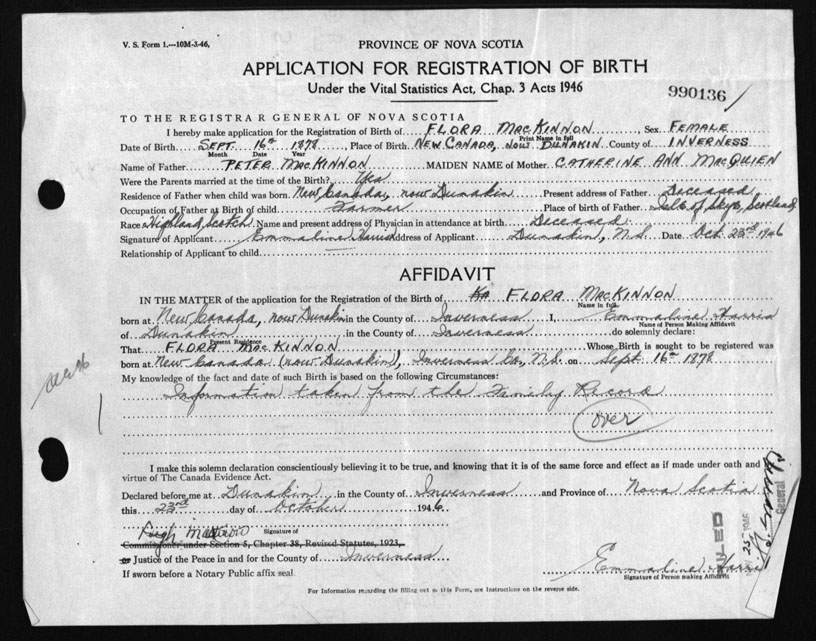 V. S. Form 1.—10M-3-46.
PROVINCE OF NOVA SCOTIA
APPLICATION FOR REGISTRATION OF BIRTH
Under the Vital Statistics Act, Chap. 3 Acts 1946
990136
TO THE REGISTRAR GENERAL OF NOVA SCOTIA
I hereby make application for the Registration of Birth of FLORA MacKINNON, Sex FEMALE
Print Name in full
Date of Birth SEPT. 16th 1878, Place of Birth NEW CANADA, now DUNAKIN County of INVERNESS
Month Date Year
Name of Father PETER MacKINNON MAIDEN NAME of Mother CATHERINE ANN MacQUIEN
Were the Parents married at the time of Birth? Yes
Residence of Father when child was born New Canada, now Dunakin Present address of Father Deceased
Occupation of Father at Birth of child Farmer Place of birth of Father Isle of Skye, Scotland
Race Highland Scotch Name and present address of Physician in attendance at birth Deceased
Signature of Applicant Emmaline Harris Address of Applicant Dunakin, N.S. Date Oct. 23rd 1946
Relationship of Applicant to child
AFFIDAVIT
IN THE MATTER of the application for the Registration of the Birth of Ka FLORA MacKINNON
Name in full
born at New Canada, now Dunakin in the County of Inverness I, Emmaline Harris
Name of Person Making Affidavit
of Dunakin in the County of Inverness do solemnly declare:
Present Residence
That FLORA MacKINNON Whose Birth is sought to be registered was
born at New Canada (now Dunakin), Inverness Co., N.S. on Sept 16th 1878
My knowledge of the fact and date of such Birth is based on the following Circumstances:
Information taken from the Family Record
over
I make this solemn declaration conscientiously believing it to be true, and knowing that it is of the same force and effect as if made under oath and by
virtue of The Canada Evidence Act.
Declared before me at Dunakin in the County of Inverness and Province of Nova Scotia
this 23rd day of October 1946
Signature of
Commissioner under Section 5, Chapter 38, Revised Statutes, 1923,
or Justice of the Peace in and for the County of Inverness
If sworn before a Notary Public affix seal
Emmaline Harris
Signature of Person making Affidavit
For Information regarding the filling out of this Form, see Instructions on the reverse side.
FILED
General